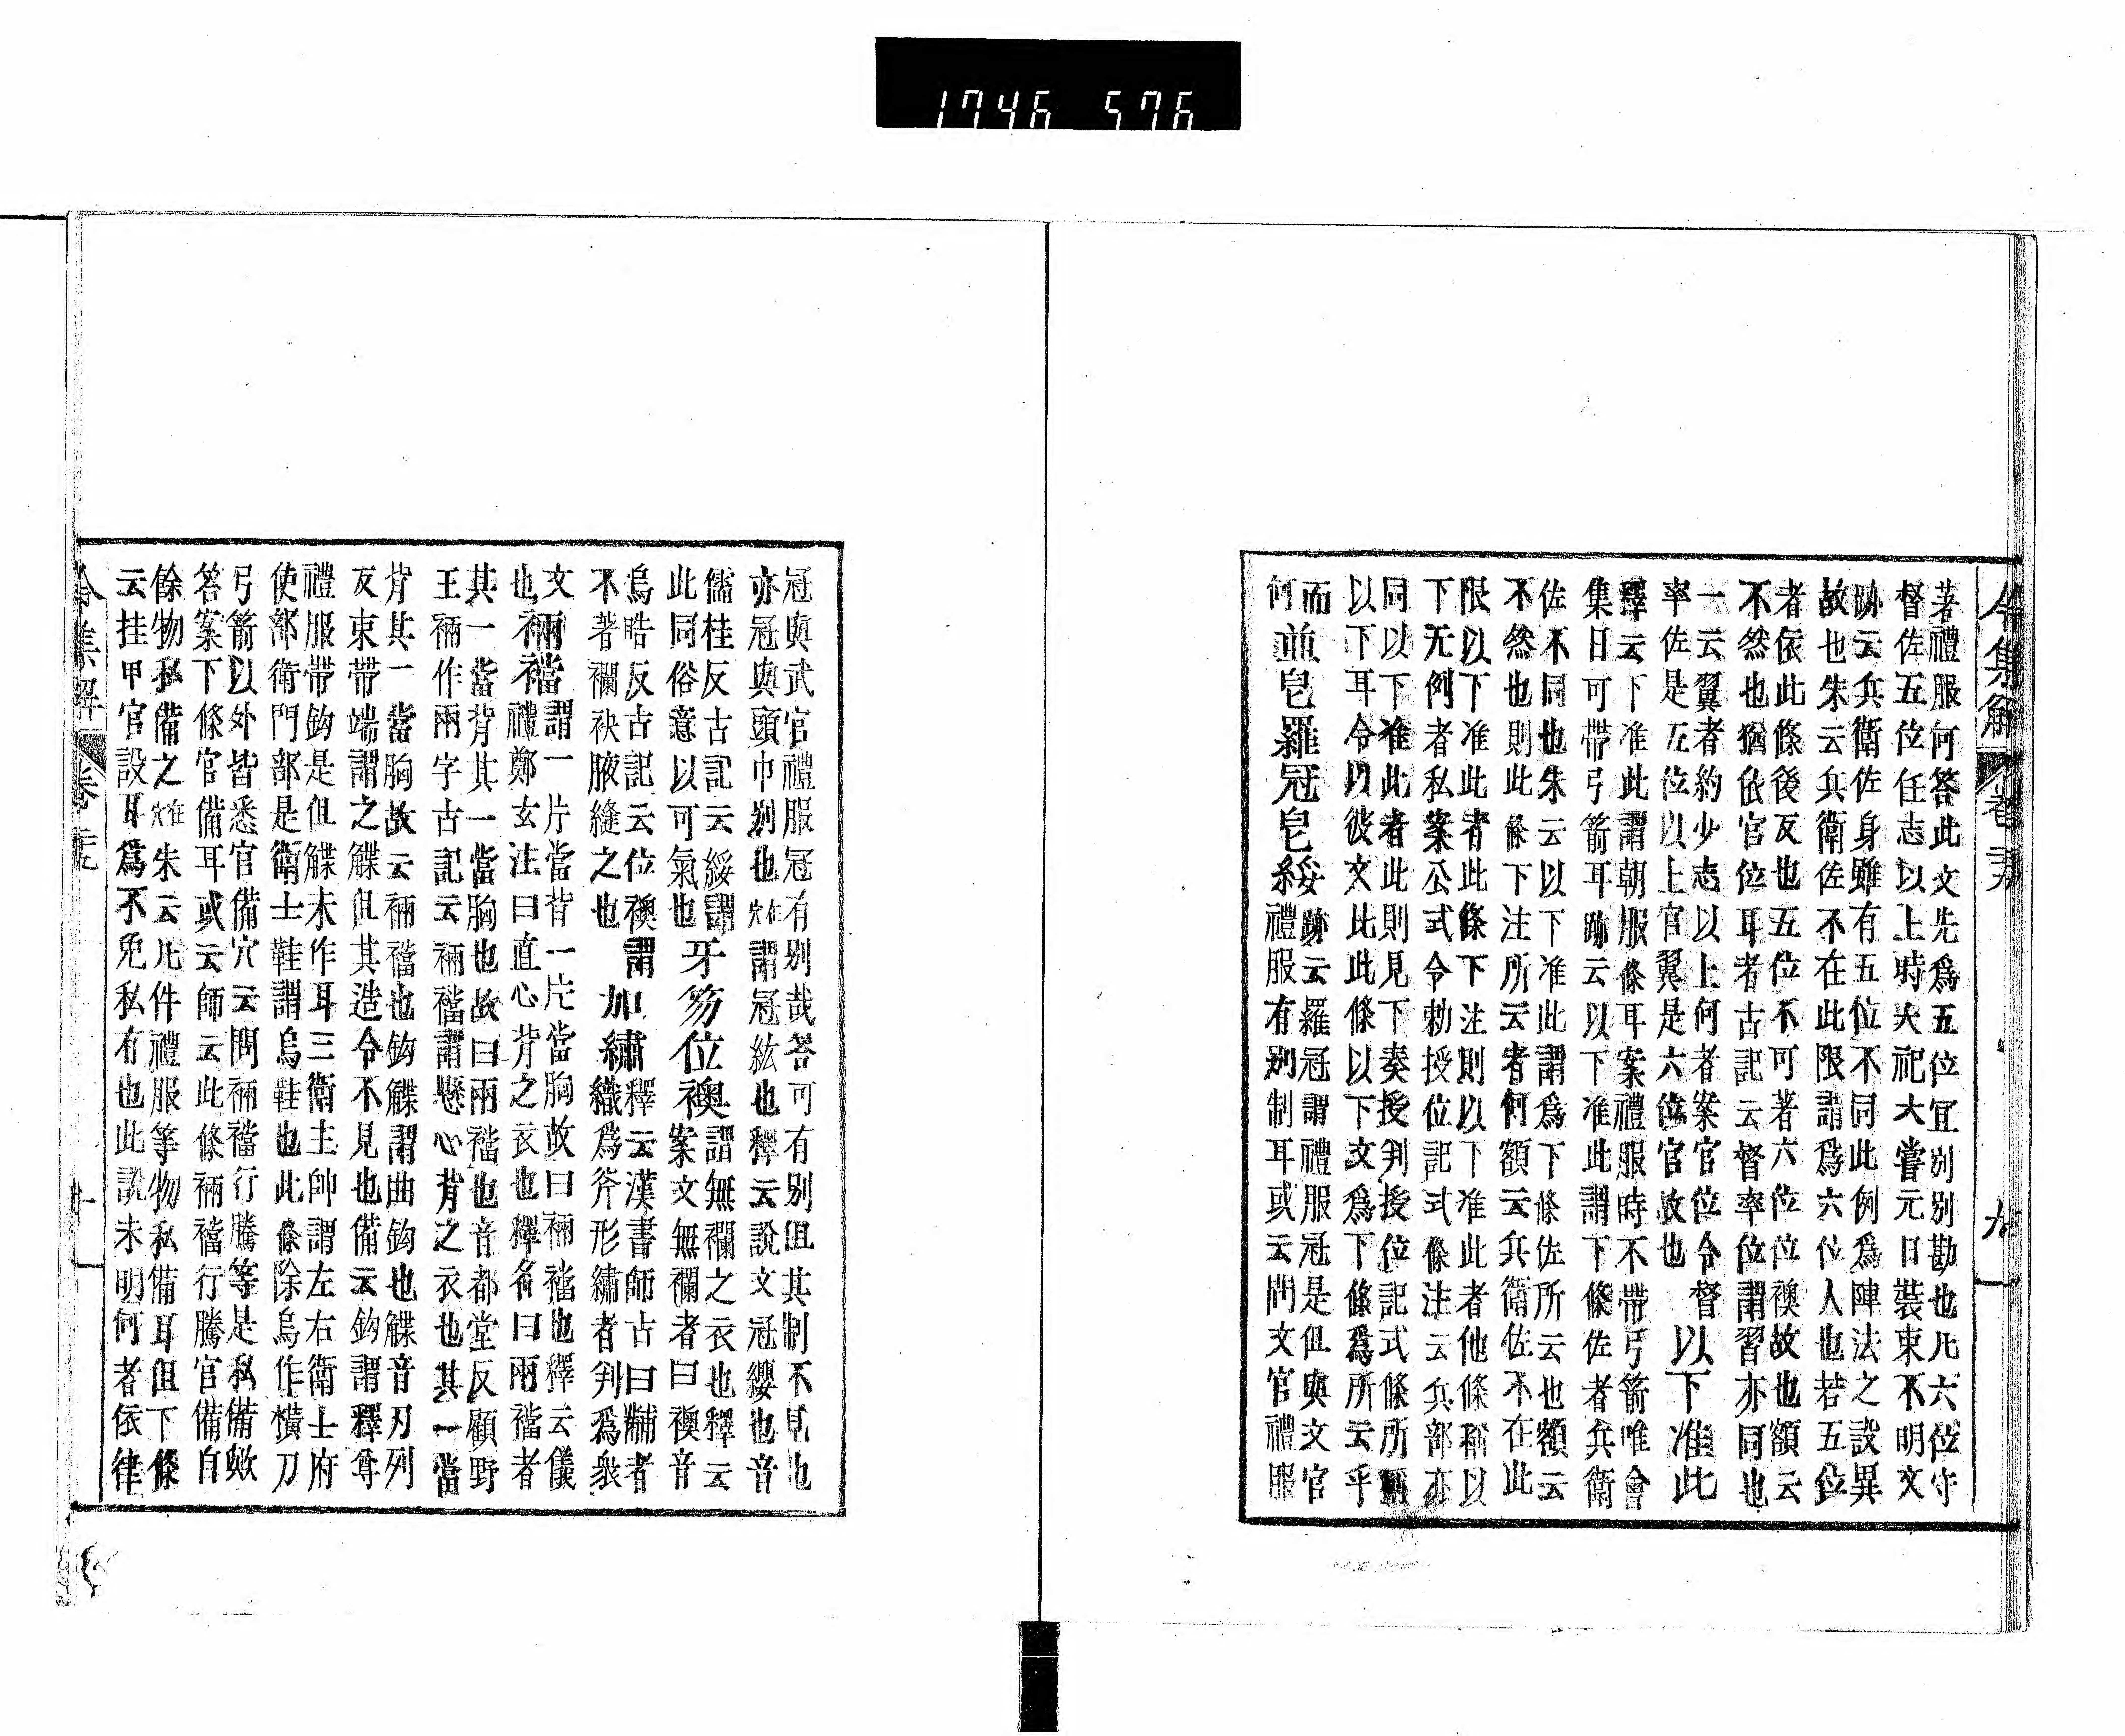 令集解 卷 九
著禮服何答此文先爲五位宜別別勘也凡六位守
督佐五位任志以上時大祀大嘗元日裝束不明文
跡云兵衛佐身雖有五位不同此例爲陣法之設異
故也朱云兵衛佐不在此限謂爲六位人也若五位
者依此條後反也五位不可著六位位襖故也額云
不然也猶依官位耳者古記云督率位謂習亦同也
一云翼者約少志以上何者案官位令督
率佐是五位以上官翼是六位官故也
以下准此
釋云下准此謂朝服條耳案禮服時不帶弓箭唯會
集日可帶弓箭耳跡云以下准此謂下條佐者兵衛
佐不同也朱云以下准此謂爲下條佐所云也額云
不然也則此條下注所云者何額云兵衛佐不在此
限以下准此者此條下注則以下准此者他條稱以
下无例者私案公式令勅授位記式條注云兵部亦
同以下准此者此則見下奏授判授位記式條所稱
以下耳令以彼文比此條以下文爲下條爲所云乎
而
何
並皀羅冠皀緌
跡云羅冠謂禮服冠是但與文官
禮服有別制耳或云問文官禮服
冠與武官禮服冠有別哉答可有別但其制不見也
亦冠與頭巾別也在穴謂冠絃也釋云說文冠纓也音
儒桂反古記云緌謂
此同俗意以可氣也
牙笏位襖
謂無襴之衣也釋云
案文無襴者曰襖音
烏晧反古記云位襖謂
不著襴袂腋縫之也
加繡
釋云漢書師古曰黼者
織爲斧形繡者判爲衆
文
也
裲襠
謂一片當背一片當胸故曰裲襠也釋云儀
禮鄭玄注曰直心背之衣也釋名曰兩襠者
其一當背其一當胸也故曰兩襠也音都堂反顧野
王裲作兩字古記云裲襠謂懸心背之衣也其一當
背其一當胸故云裲襠也鈎䚢謂曲鈎也䚢音刃列
反束帶端謂之䚢但其造令不見也備云鈎謂釋尊
禮服帶鈎是但䚢未作耳三衛主帥謂左右衛士府
使部衛門部是衛士鞋謂烏鞋也此條除烏作橫刀
弓箭以外皆悉官備穴云問裲襠行騰等是私備歟
答案下條官備耳或云師云此條裲襠行騰官備自
餘物私備之在穴朱云凡件禮服等物私備耳但下條
云挂甲官設耳爲不免私有也此說未明何者依律
令集解 卷 十